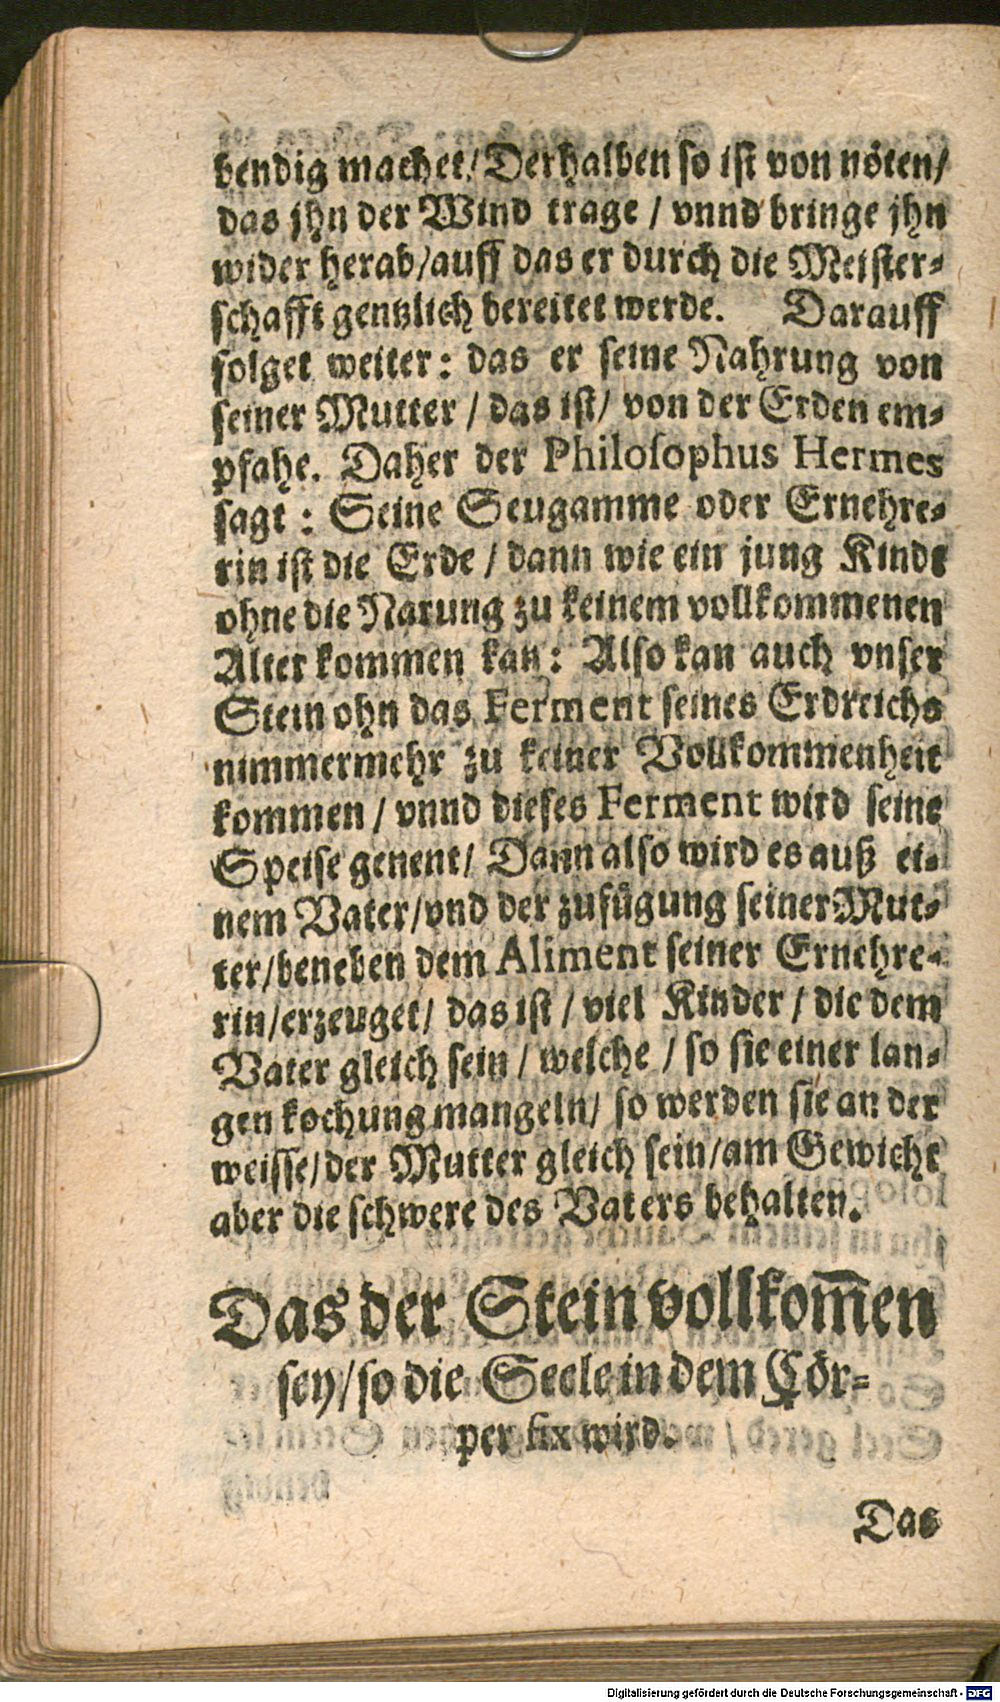 bendig machet/ Derhalben so ist von nöten/
das jhn der Wind trage / vnnd bringe jhn
wider herab/auff das er durch die Meister-
schafft gentzlich bereitet werde. Darauff
folget weiter: das er seine Nahrung von
seiner Mutter / das ist/ von der Erden em-
pfahe. Daher der Philosophus Hermes
sagt : Seine Seugamme oder Ernehre-
rin ist die Erde / dann wie ein jung Kindt
ohne die Narung zu keinem vollkommenen
Alter kommen kan: Also kan auch vnser
Stein ohn das Ferment seines Erdreichs
nimmermehr zu keiner Vollkommenheit
kommen / vnnd dieses Ferment wird seine
Speise genent/ Dann also wird es auß ei-
nem Vater/vnd der zufügung seiner Mut-
ter/beneben dem Aliment seiner Ernehre-
rin/erzeuget/ das ist / viel Kinder / die dem
Vater gleich sein / welche / so sie einer lan-
gen kochung mangeln/ so werden sie an der
weisse/der Mutter gleich sein/am Gewicht
aber die schwere des Vaters behalten.
Das der Stein vollkom̄en
sey/so die Seele in dem Cör-
per fix wird.
Das
Digitalisierung gefördert durch die Deutsche Forschungsgemeinschaft - DFG